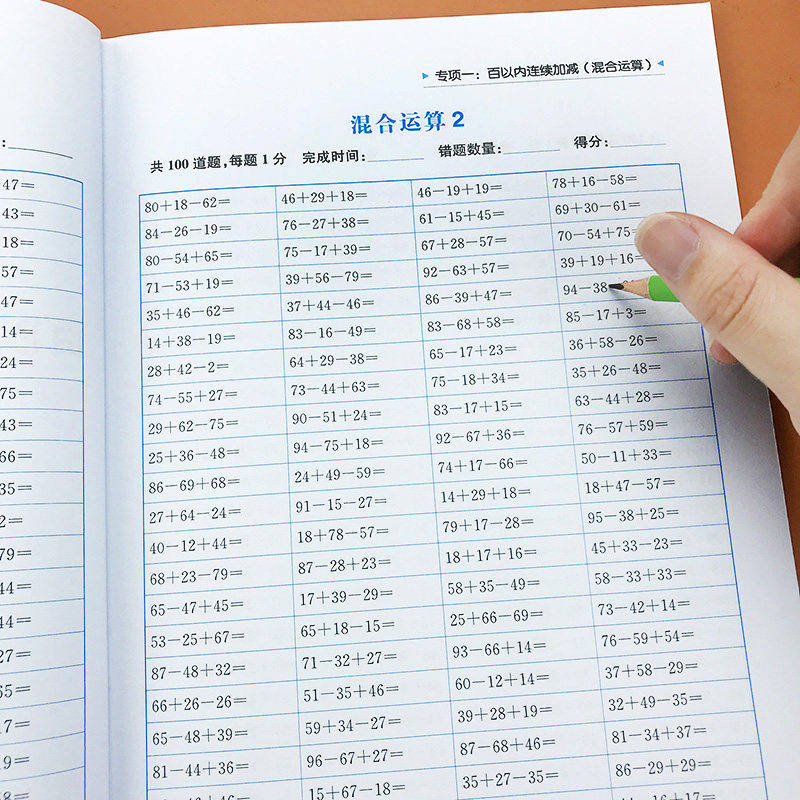 +47=
43=
18=
57=
47=
14=
24=
75=
43=
66=
35=
2=
79=
44=
44=
27=
65=
19=
专项一：百以内连续加减（混合运算）
混合运算 2
共 100 道题，每题 1 分 完成时间： 错题数量： 得分：
80+18−62= 46+29+18= 46−19+19= 78+16−58=
84−26−19= 76−27+38= 61−15+45= 69+30−61=
80−54+65= 75−17+39= 67+28−57= 70−54+75=
71−53+19= 39+56−79= 92−63+57= 39+19+16=
35+46−62= 37+44−46= 86−39+47= 94−38
14+38−19= 83−16−49= 83−68+58= 85−17+3=
28+42−2= 64+29−38= 65−17+23= 36+58−26=
74−55+27= 73−44+63= 75−18+34= 35+26−48=
29+62−75= 90−51+24= 83−17+15= 63−44+28=
25+36−48= 94−75+18= 92−67+36= 76−57+59=
86−69+68= 24+49−59= 74+17−66= 50−11+33=
27+64−24= 91−15−27= 14+29+18= 18+47−57=
40−12+44= 18+78−57= 79+17−28= 95−38+25=
68+23−79= 87−28+23= 18+17+16= 45+33−23=
65−47+45= 17+39−29= 58+35−49= 58−33+33=
53−25+67= 65+18−15= 25+66−69= 73−42+14=
87−48+32= 71−32+27= 93−66+14= 76−59+54=
66+26−26= 51−35+46= 60−12+14= 37+58−29=
65−48+39= 59+34−27= 39+28+19= 32+49−35=
81−44+36= 96−67+27= 87−68+46= 81−34+37=
15+67−18= 35+27−35= 86−29+29=